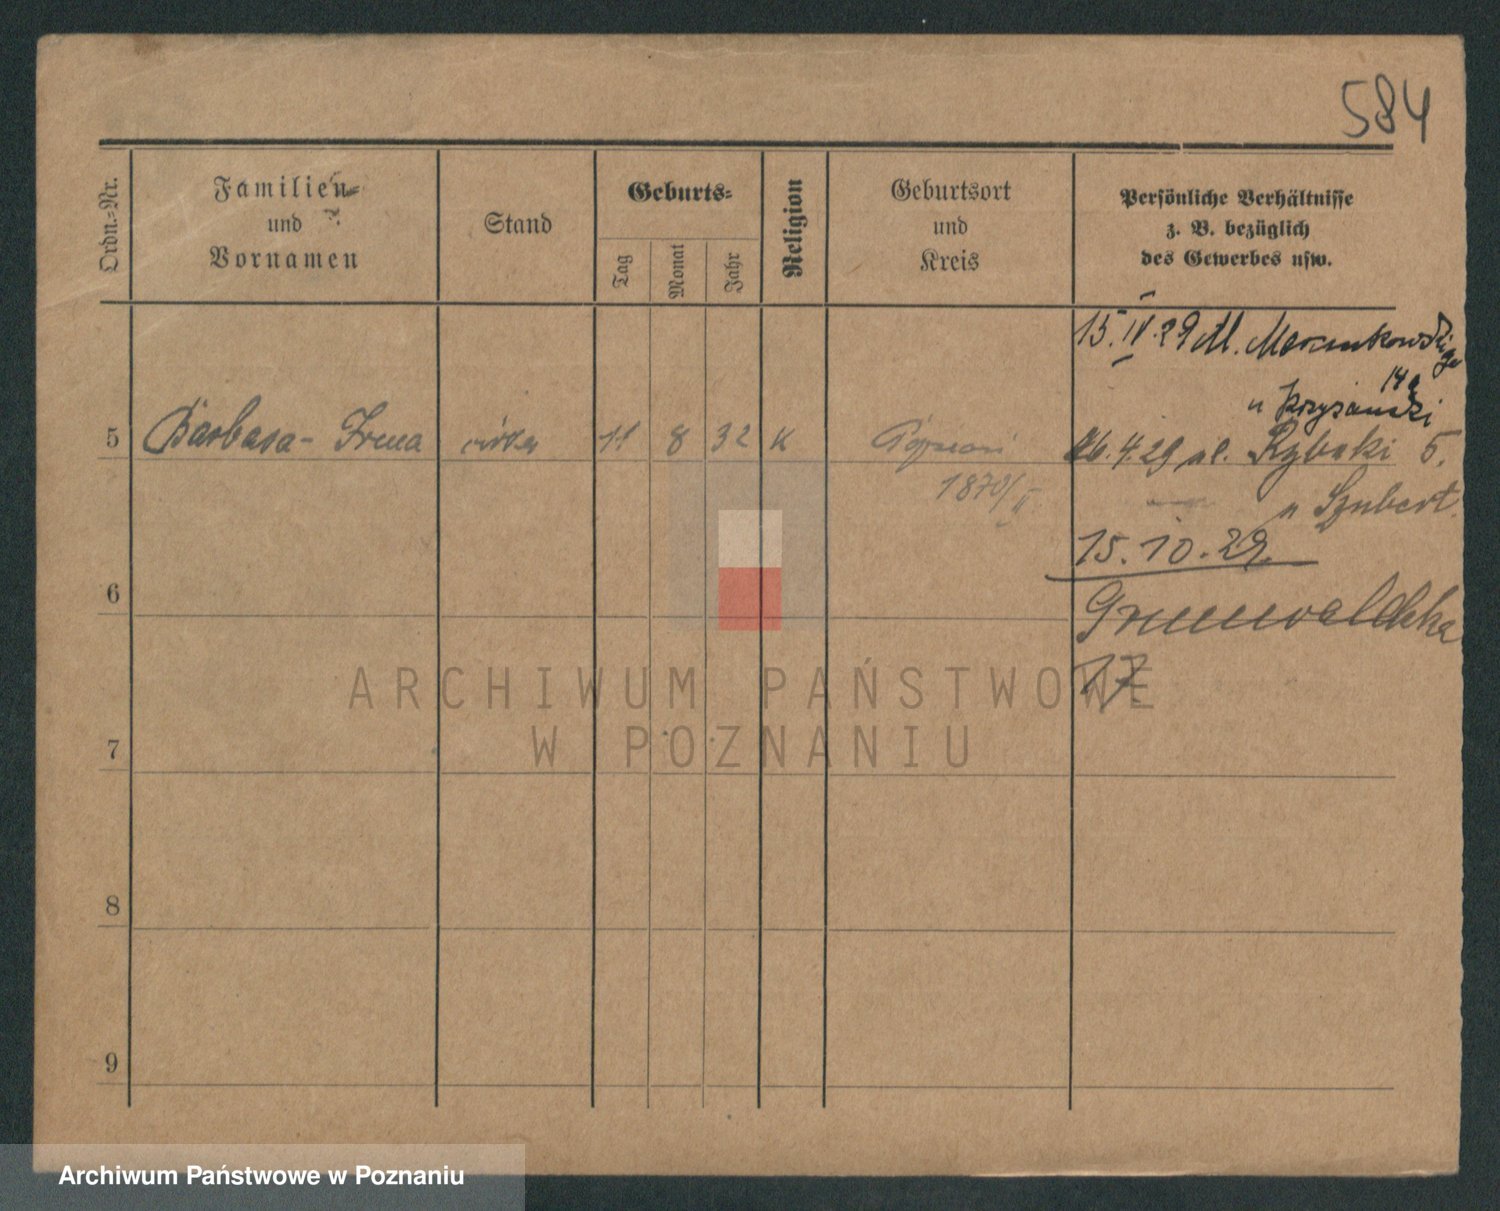 584
Ordn.=Nr.
Familien=
und
Vornamen
Stand
Geburts=
Tag
Monat
Jahr
Religion
Geburtsort
und
Kreis
Persönliche Verhältnisse
z. B. bezüglich
des Gewerbes usw.
15. IV. 29 Ul. Marcinkowskiego
14a
u Krzyżański
5 Barbara - Irena córka 11 8 32 K Poznań
26.4.29 ul. Rybaki 5.
1870/II
u Szubert.
15.10.29.
6
Grunwaldzka
17
7
8
9
ARCHIWUM PAŃSTWOWE
W POZNANIU
Archiwum Państwowe w Poznaniu